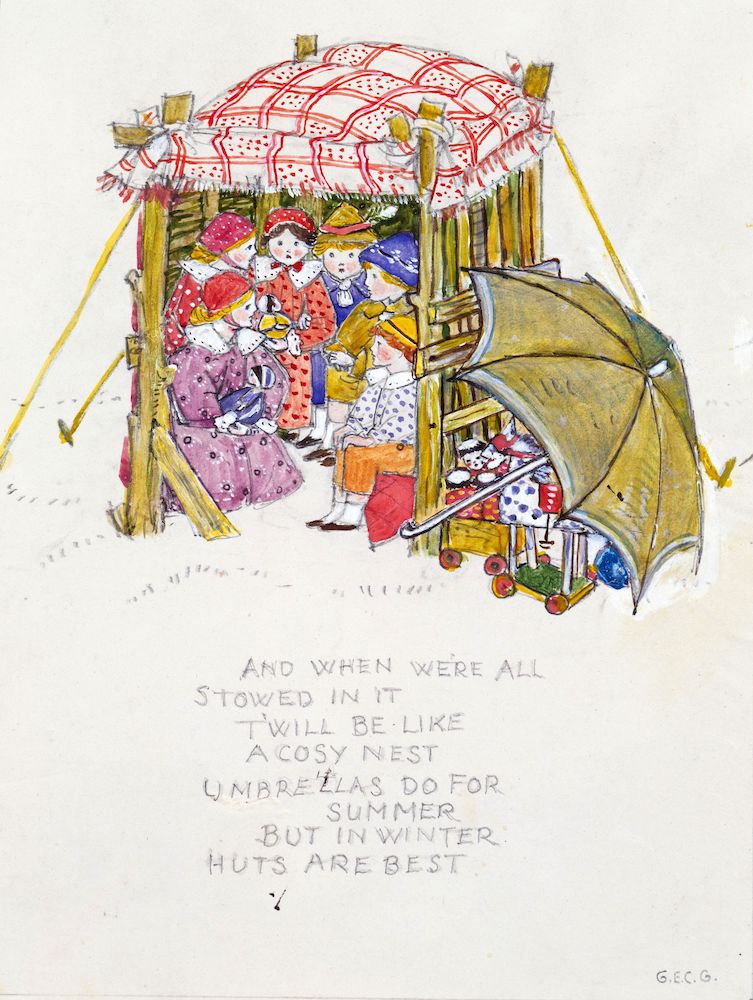 AND WHEN WE'RE ALL
STOWED IN IT
T'WILL BE LIKE
A COSY NEST
UMBRELLAS DO FOR
SUMMER
BUT IN WINTER
HUTS ARE BEST
G.E.C.G.